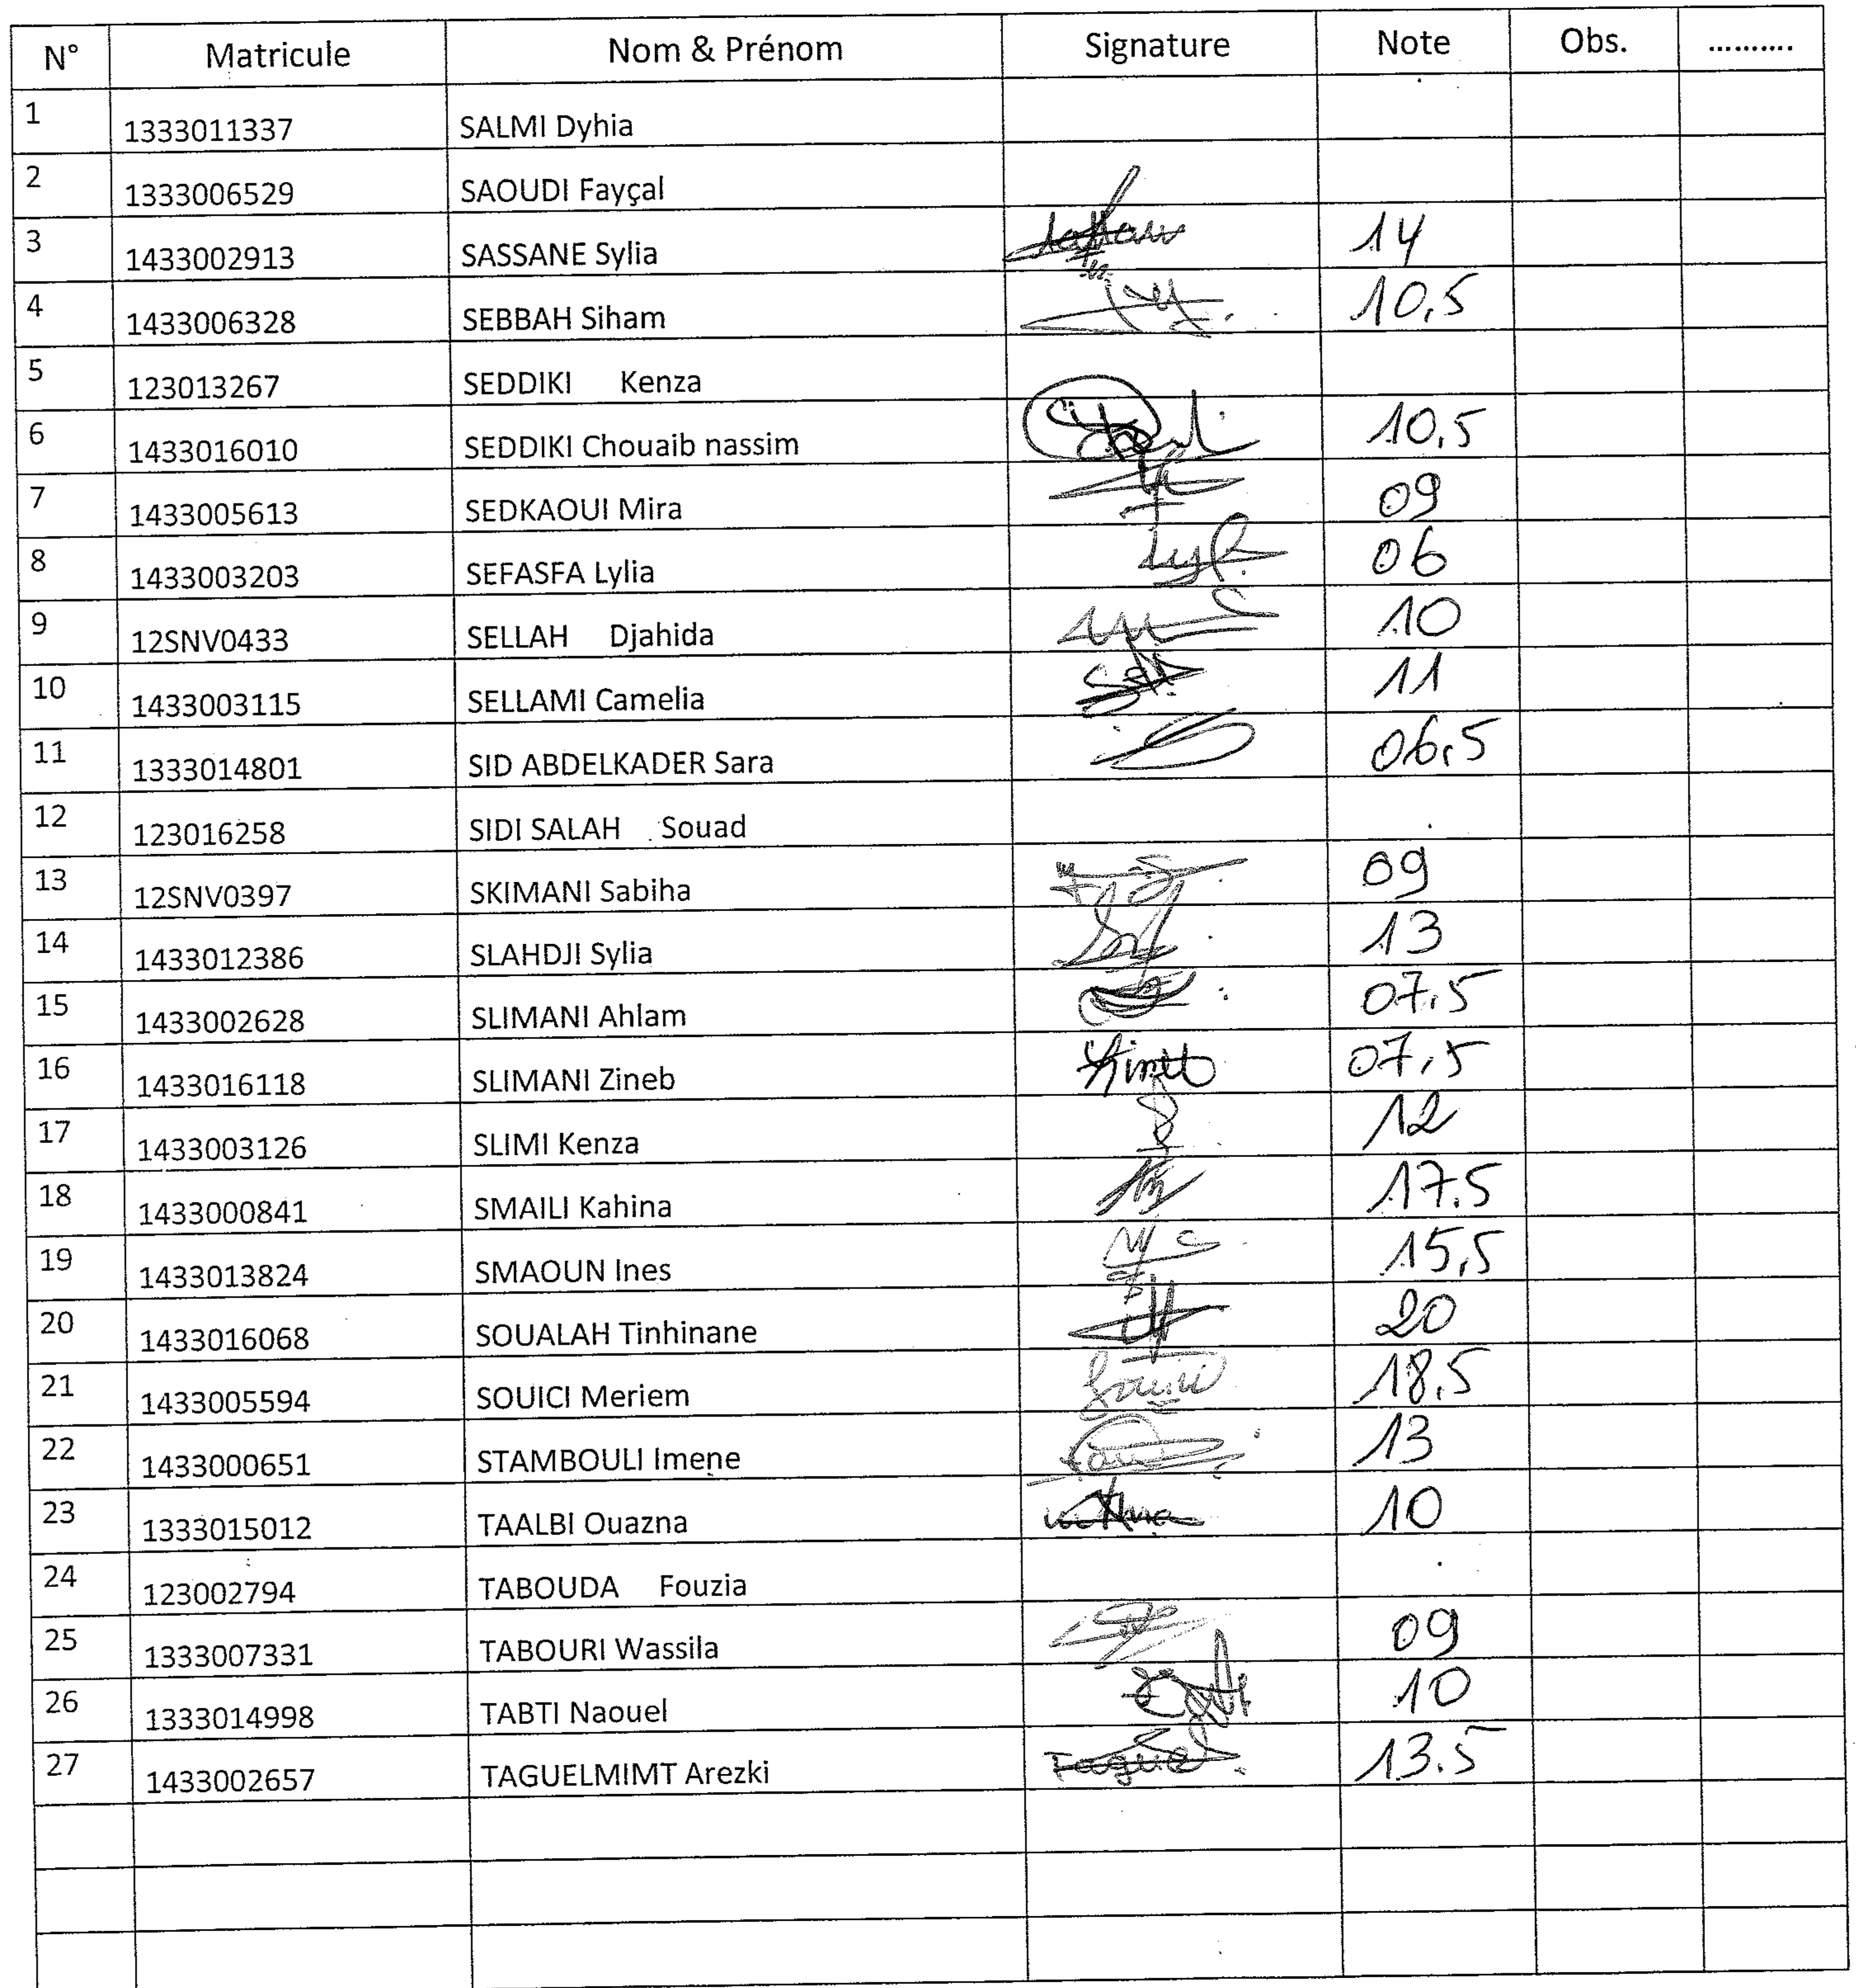 N° Matricule Nom & Prénom Signature Note Obs. ..........
1 1333011337 SALMI Dyhia
2 1333006529 SAOUDI Fayçal
3 1433002913 SASSANE Sylia 14
4 1433006328 SEBBAH Siham 10,5
5 123013267 SEDDIKI Kenza
6 1433016010 SEDDIKI Chouaib nassim 10,5
7 1433005613 SEDKAOUI Mira 09
8 1433003203 SEFASFA Lylia 06
9 12SNV0433 SELLAH Djahida 10
10 1433003115 SELLAMI Camelia 11
11 1333014801 SID ABDELKADER Sara 06,5
12 123016258 SIDI SALAH Souad
13 12SNV0397 SKIMANI Sabiha 09
14 1433012386 SLAHDJI Sylia 13
15 1433002628 SLIMANI Ahlam 07,5
16 1433016118 SLIMANI Zineb 07,5
17 1433003126 SLIMI Kenza 12
18 1433000841 SMAILI Kahina 17.5
19 1433013824 SMAOUN Ines 15,5
20 1433016068 SOUALAH Tinhinane 20
21 1433005594 SOUICI Meriem 18,5
22 1433000651 STAMBOULI Imene 13
23 1333015012 TAALBI Ouazna 10
24 123002794 TABOUDA Fouzia
25 1333007331 TABOURI Wassila 09
26 1333014998 TABTI Naouel 10
27 1433002657 TAGUELMIMT Arezki 13.5